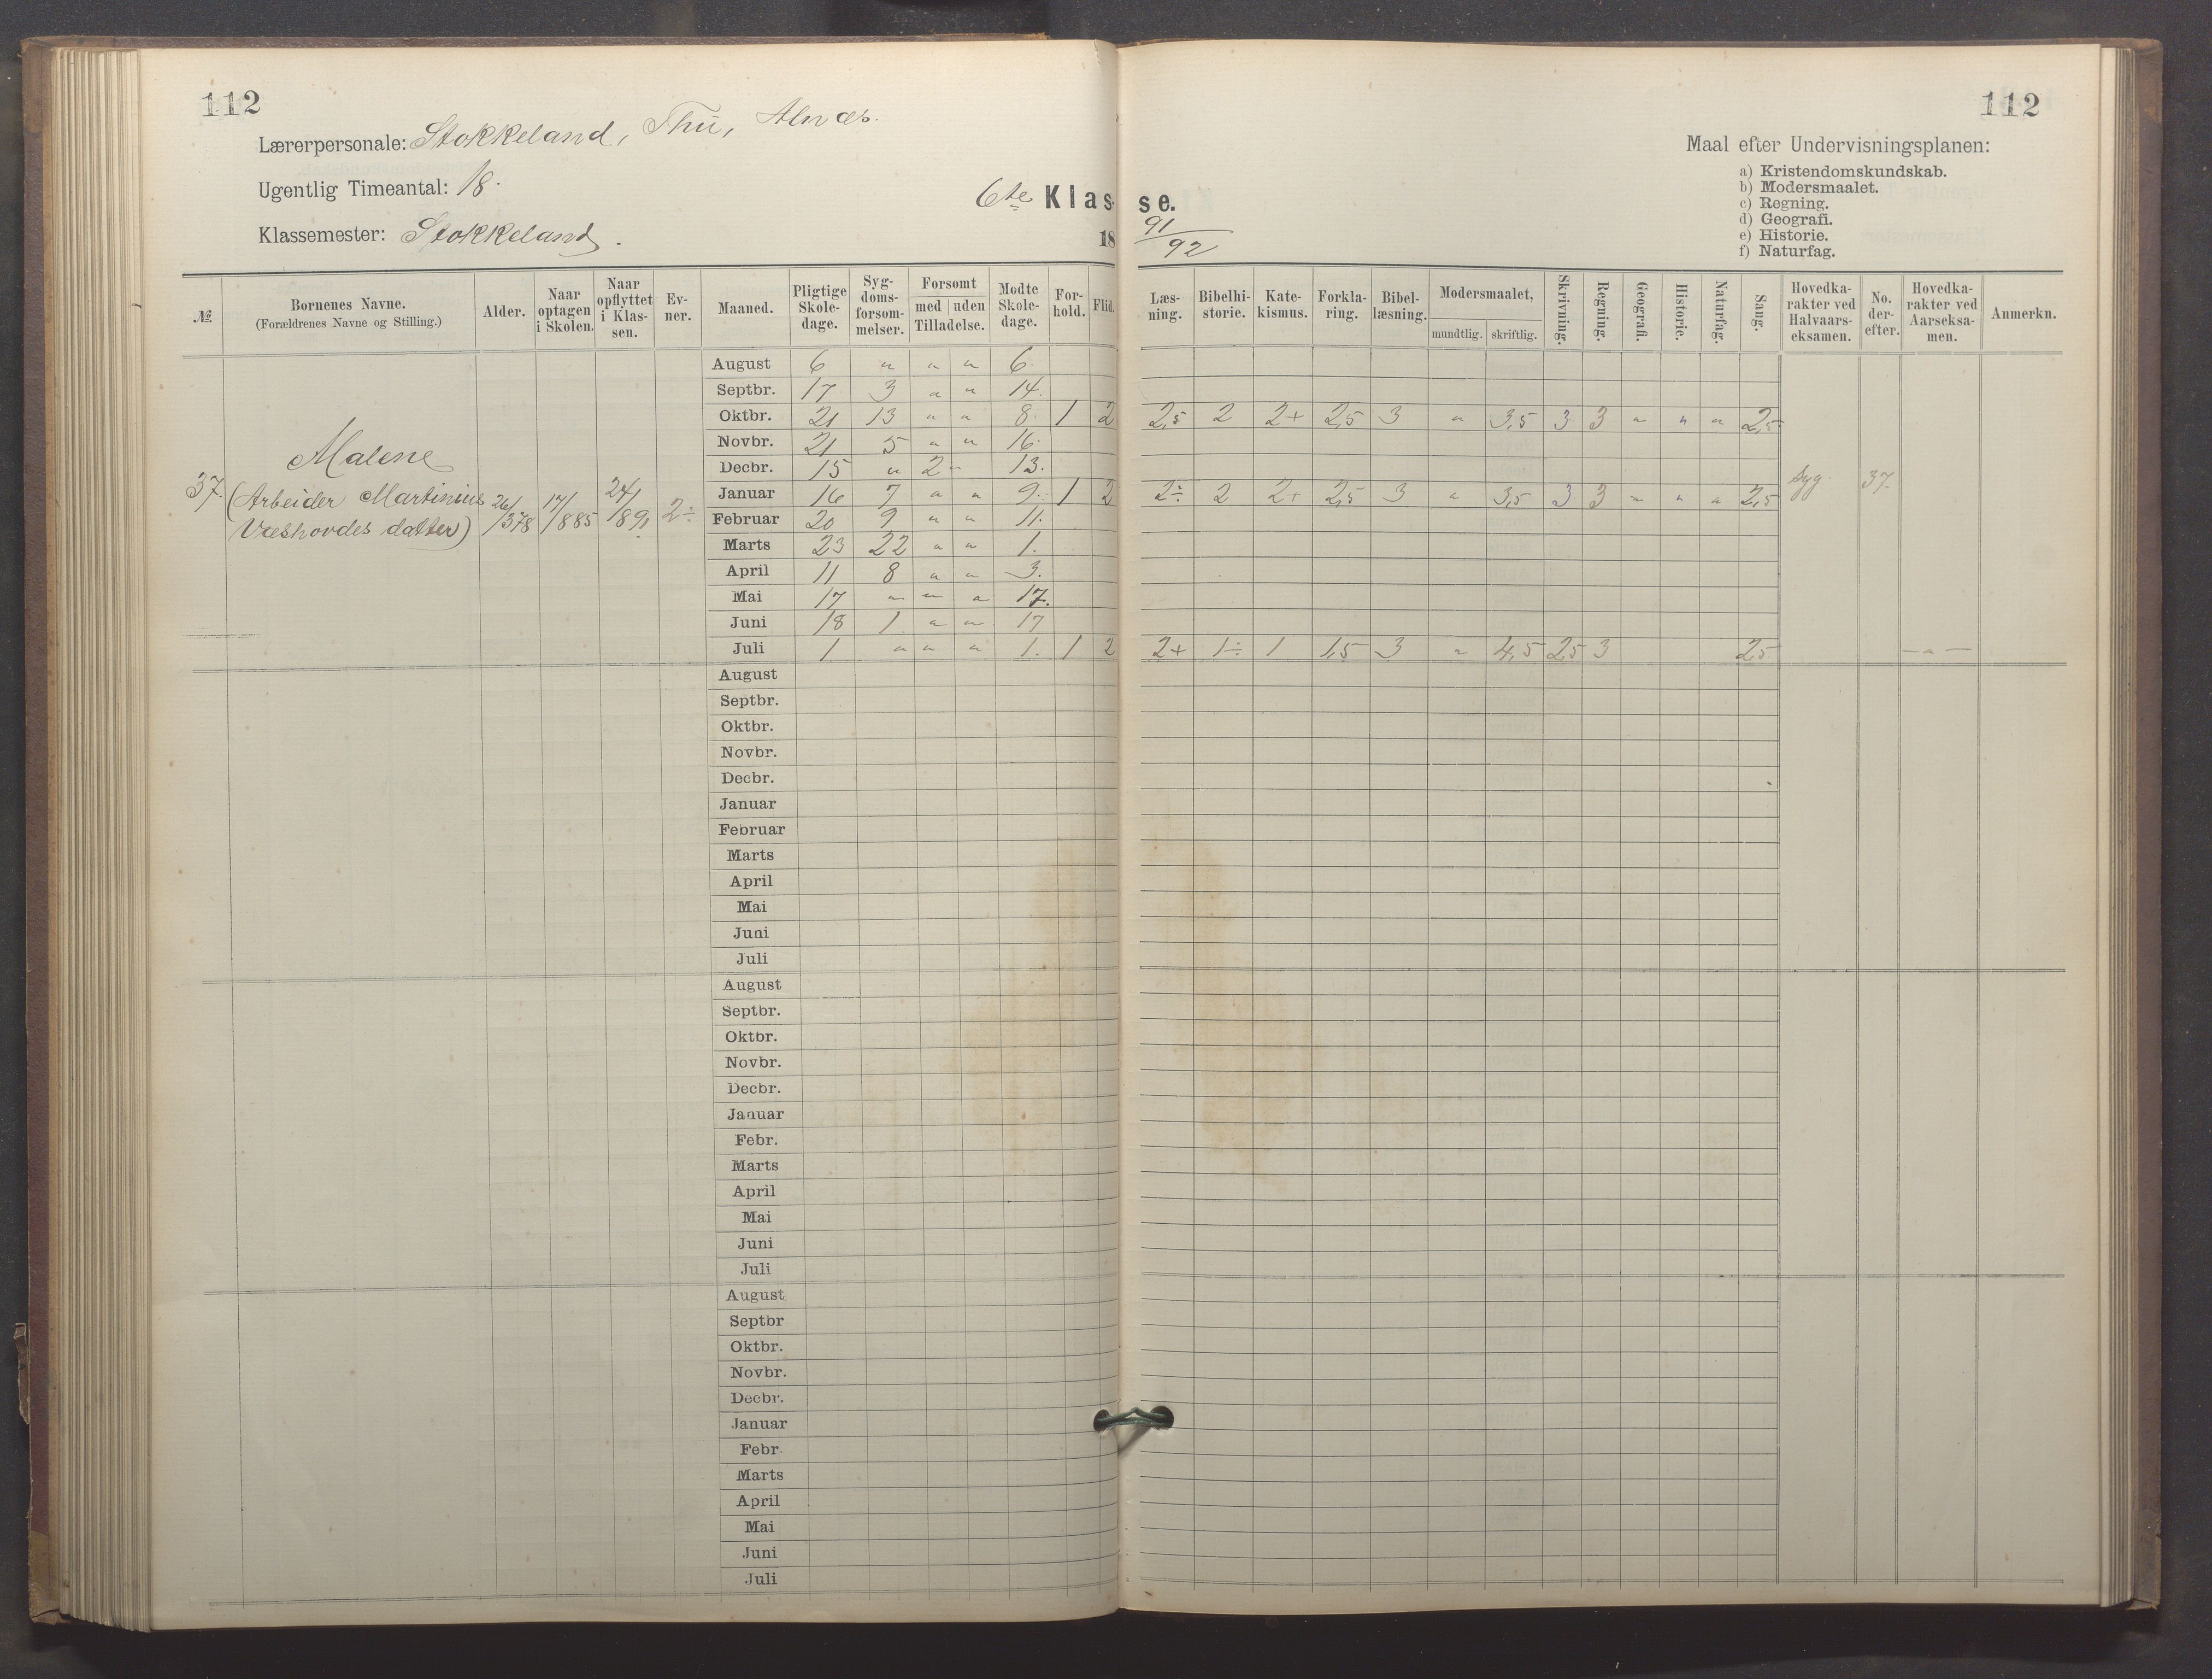 112
Lærerpersonale: Stokkeland, Thu, Alnæs.
Ugentlig Timeantal: 18.
Klassemester: Stokkeland.
6te Klas-
18
№
Bornenes Navne.
(Forældrenes Navne og Stilling.)
Alder.
Naar optagen i Skolen.
Naar opflyttet i Klas-sen.
Ev-ner.
Maaned.
Pligtige Skole-dage.
Syg-doms-forsom-melser.
Forsomt
med | uden
Tilladelse.
Modte Skole-dage.
For-hold.
Flid.
37.
Malene
(Arbeider Martinius
datter)
26/378
17/885
24/891
2÷
August 6 " " " 6.
Septbr. 17 3 " " 14.
Oktbr. 21 13 " " 8. 1 2
Novbr. 21 5 " " 16.
Decbr. 15 " 2 " 13.
Januar 16 7 " " 9. 1 2
Februar 20 9 " " 11.
Marts 23 22 " " 1.
April 11 8 " " 3.
Mai 17 " " " 17.
Juni 18 1 " " 17
Juli 1 " " " 1. 1 2
August
Septbr.
Oktbr.
Novbr.
Decbr.
Januar
Februar
Marts
April
Mai
Juni
Juli
August
Septbr.
Oktbr.
Novbr.
Decbr.
Januar
Febr.
Marts
April
Mai
Juni
Juli
August
Septbr
Oktbr.
Novbr.
Decbr.
Januar
Febr.
Marts
April
Mai
Juni
Juli
112
Maal efter Undervisningsplanen:
a) Kristendomskundskab.
b) Modersmaalet.
c) Regning.
d) Geografi.
e) Historie.
f) Naturfag.
se.
91/92
Læs-ning.
Bibelhi-storie.
Kate-kismus.
Forkla-ring.
Bibel-læsning.
Modersmaalet,
mundtlig. skriftlig.
Skrivning.
Regning.
Geografi.
Historie.
Naturfag.
Sang.
Hovedka-rakter ved Halvaars-eksamen.
No. der-efter.
Hovedka-rakter ved Aarseksa-men.
Anmerkn.
2,5 2 2+ 2,5 3 " 3,5 3 3 " " " 2,5
2÷ 2 2+ 2,5 3 " 3,5 3 3 " " " 2,5
Syg. 37.
2+ 1÷ 1 1,5 3 " 4,5 2,5 3 2,5 — " —